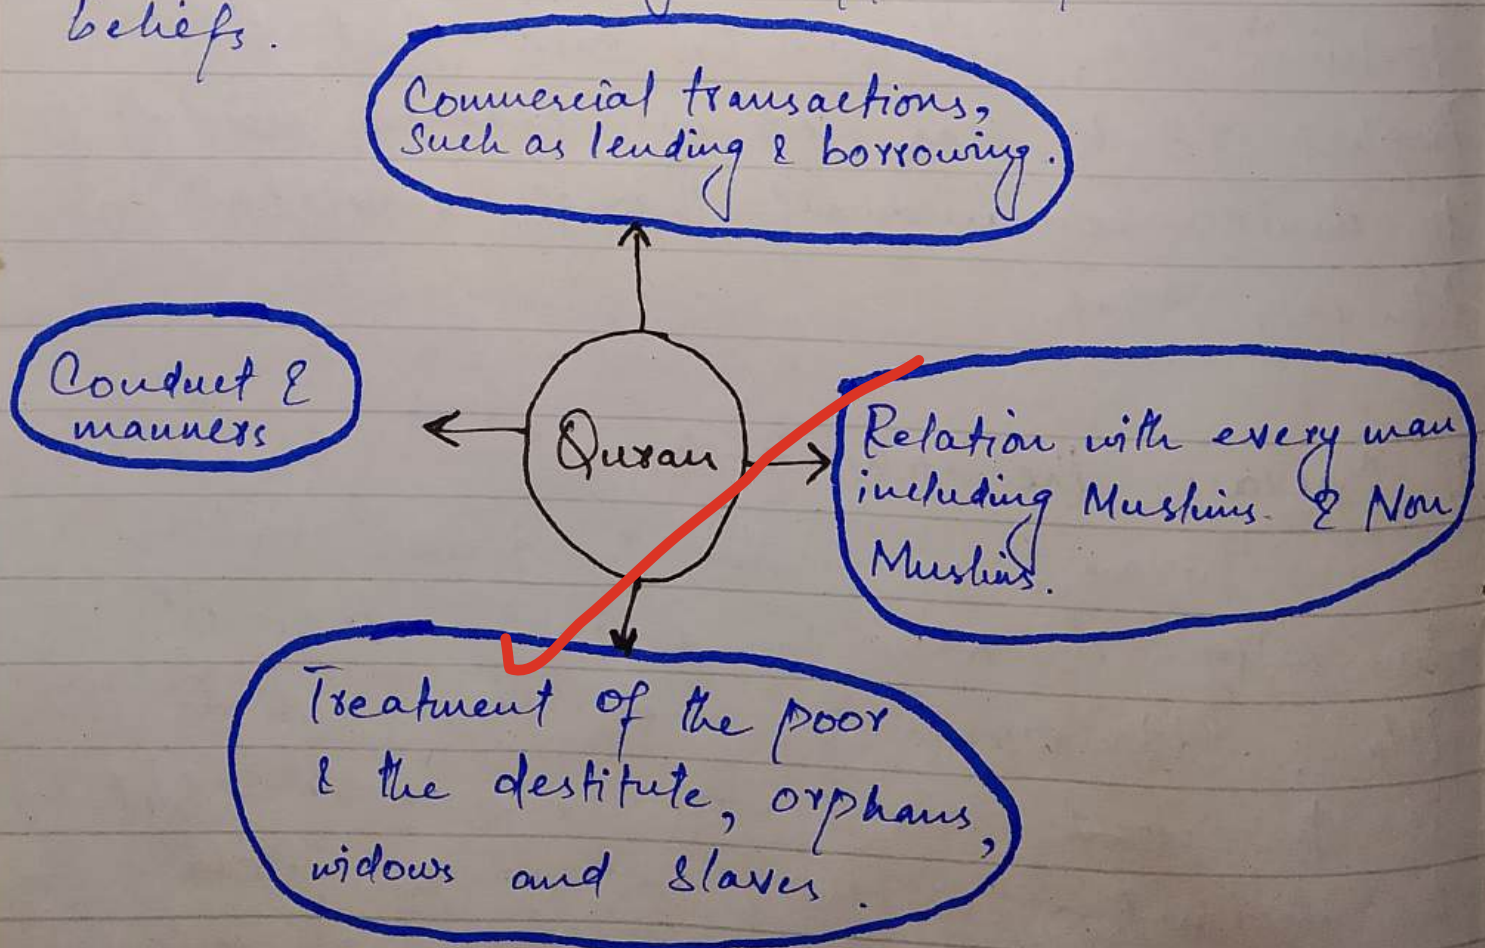 beliefs.
Commercial transactions,
such as lending & borrowing.
Conduct &
manners
Quran
Relation with every man
including Muslims & Non
Muslims.
Treatment of the poor
& the destitute, orphans,
widows and slaves.